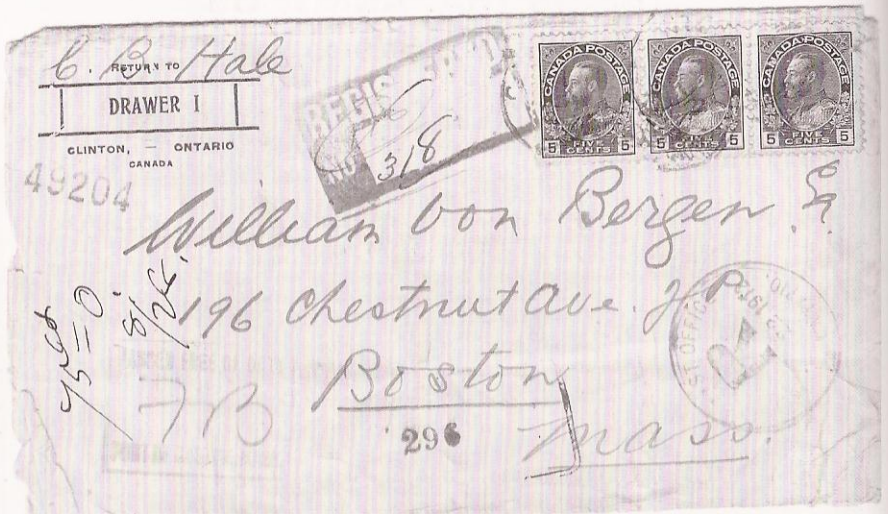 C. B. Hale
RETURN TO
DRAWER I
CLINTON, — ONTARIO
CANADA
49204
REGISTERED
No.
318
CANADA POSTAGE
5 FIVE CENTS 5
CANADA POSTAGE
5 FIVE CENTS 5
CANADA POSTAGE
5 FIVE CENTS 5
William von Bergen
196 Chestnut Ave. J. P.
Boston
Mass.
296
8/26